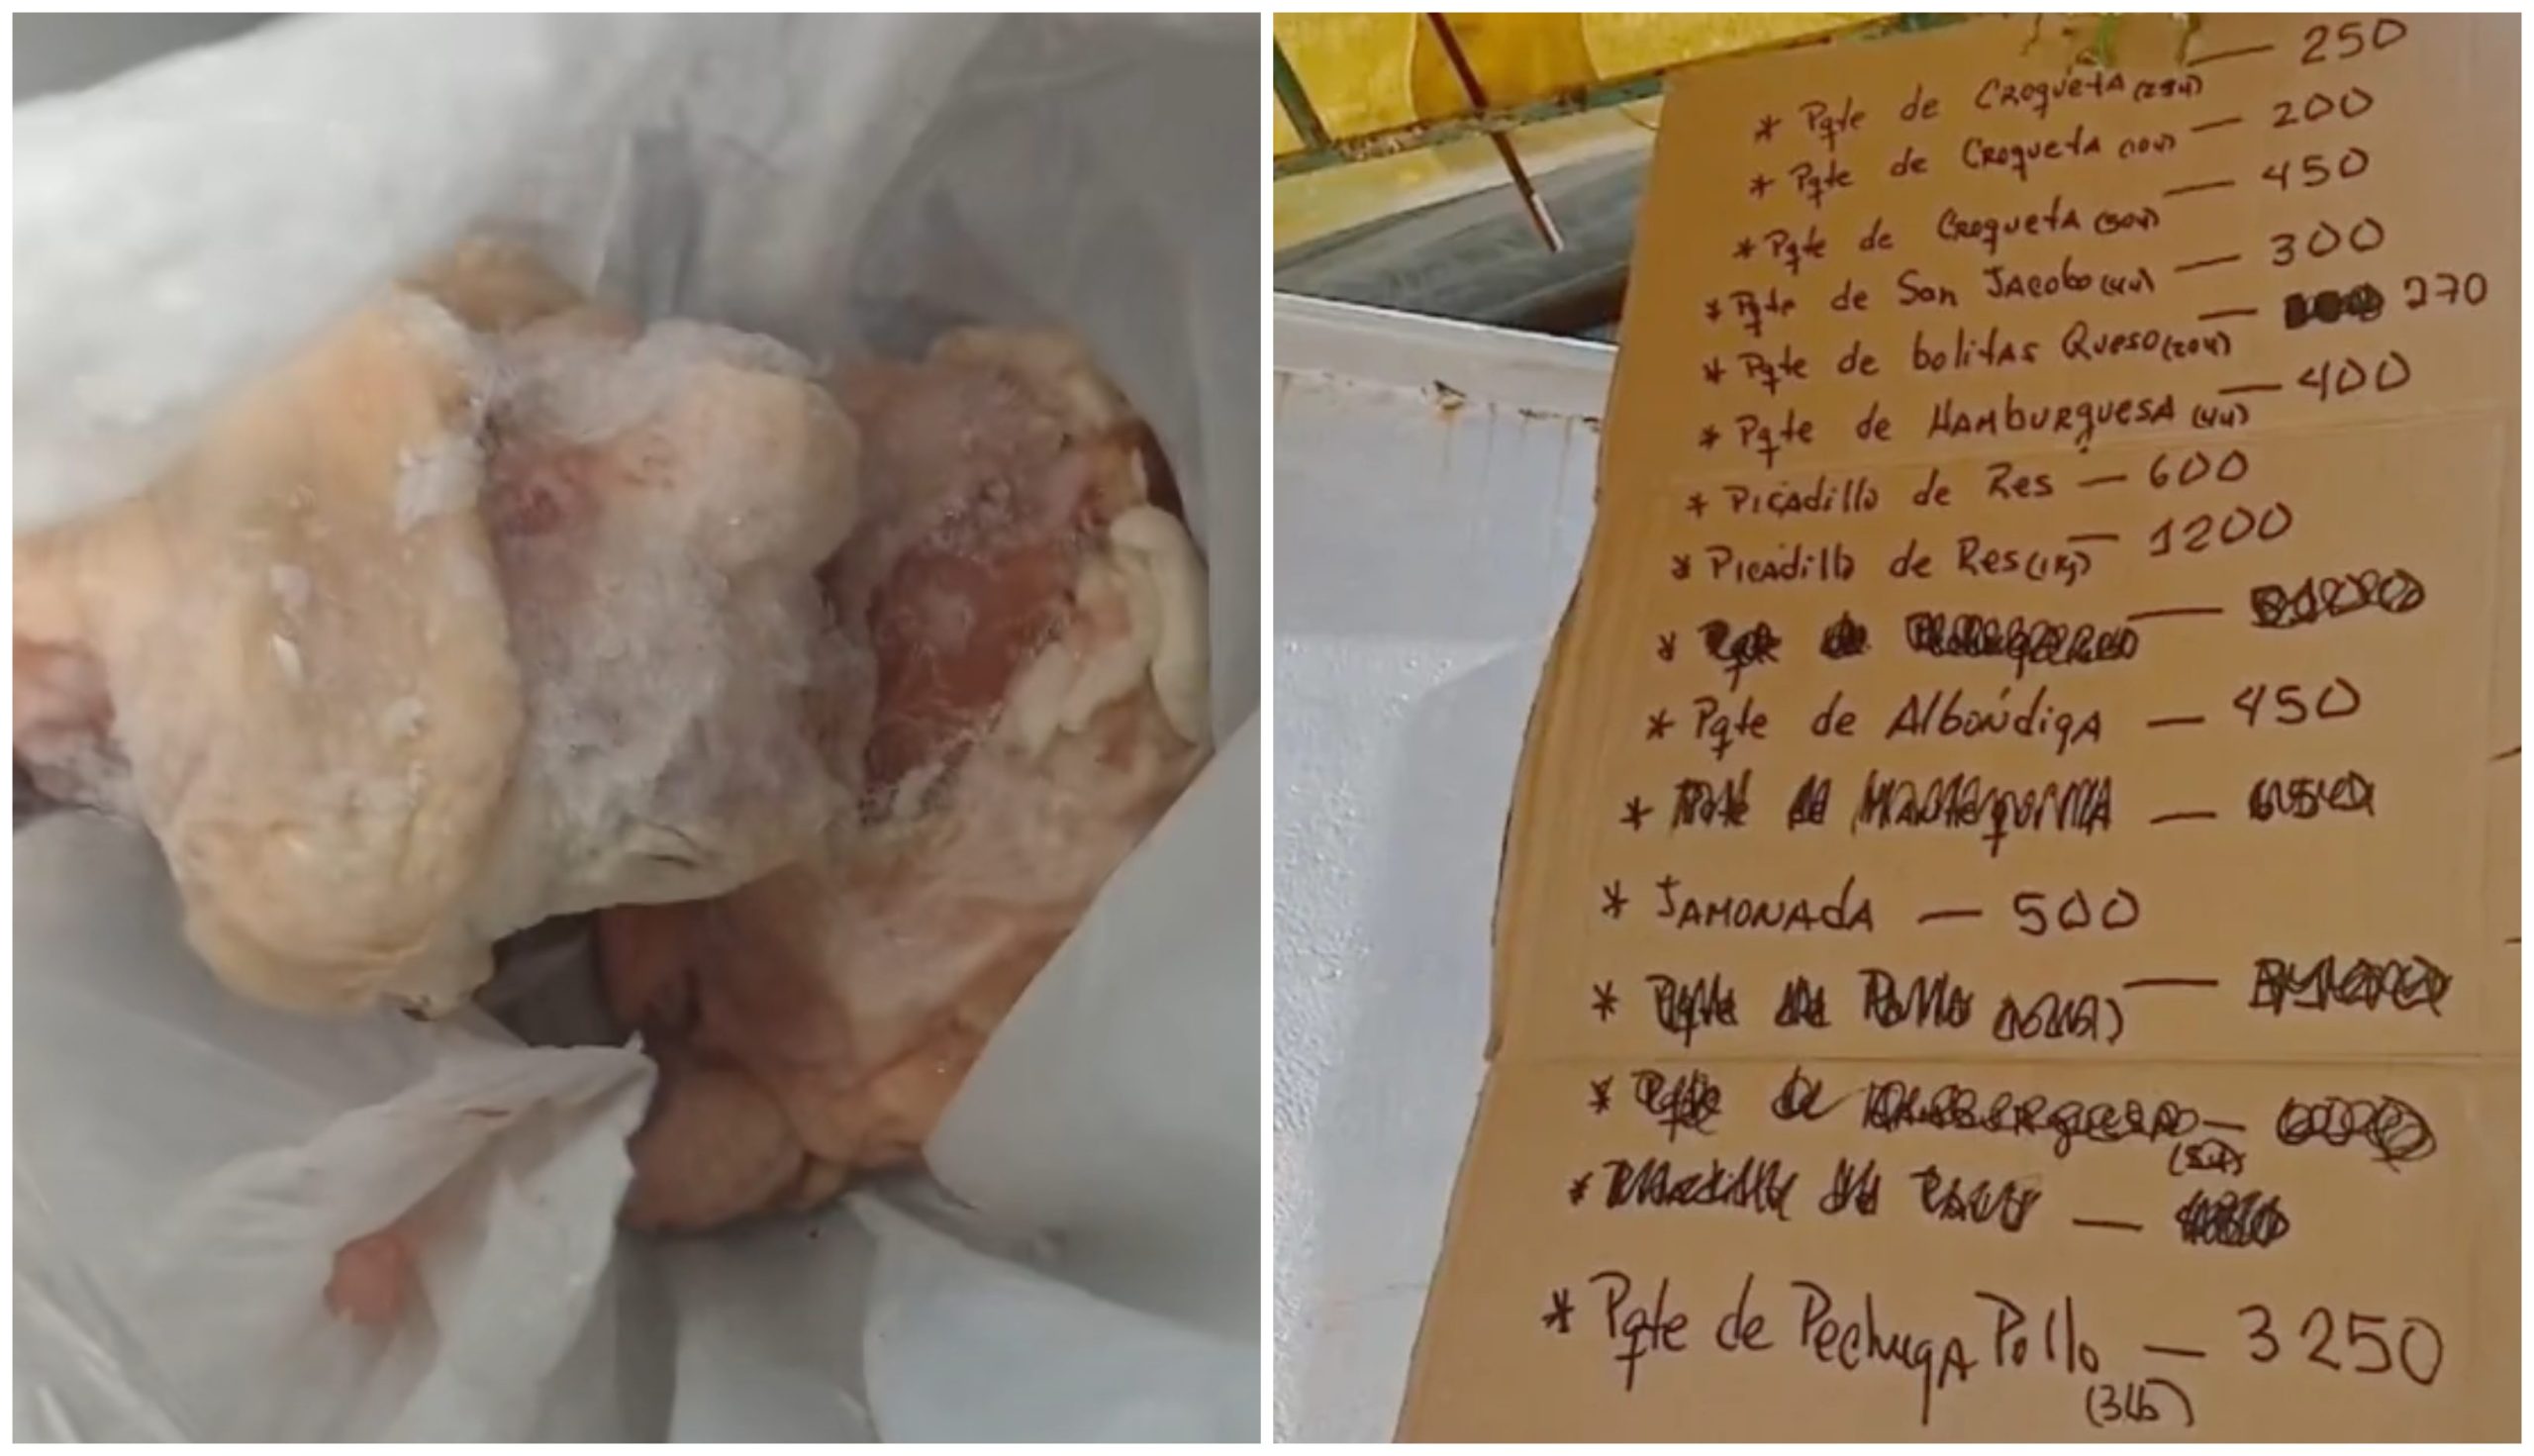 * Pqte de Croqueta (25u) — 250
* Pqte de Croqueta (10u) — 200
* Pqte de Croqueta (50u) — 450
* Pqte de San Jacobo (4u) — 300
* Pqte de bolitas Queso (20u) — 270
* Pqte de Hamburguesa (4u) — 400
* Picadillo de Res — 600
* Picadillo de Res (1Kg) — 1200
* Pqte de Albóndiga — 450
* Jamonada — 500
* Pqte de Pechuga Pollo — 3250
(3Lb)